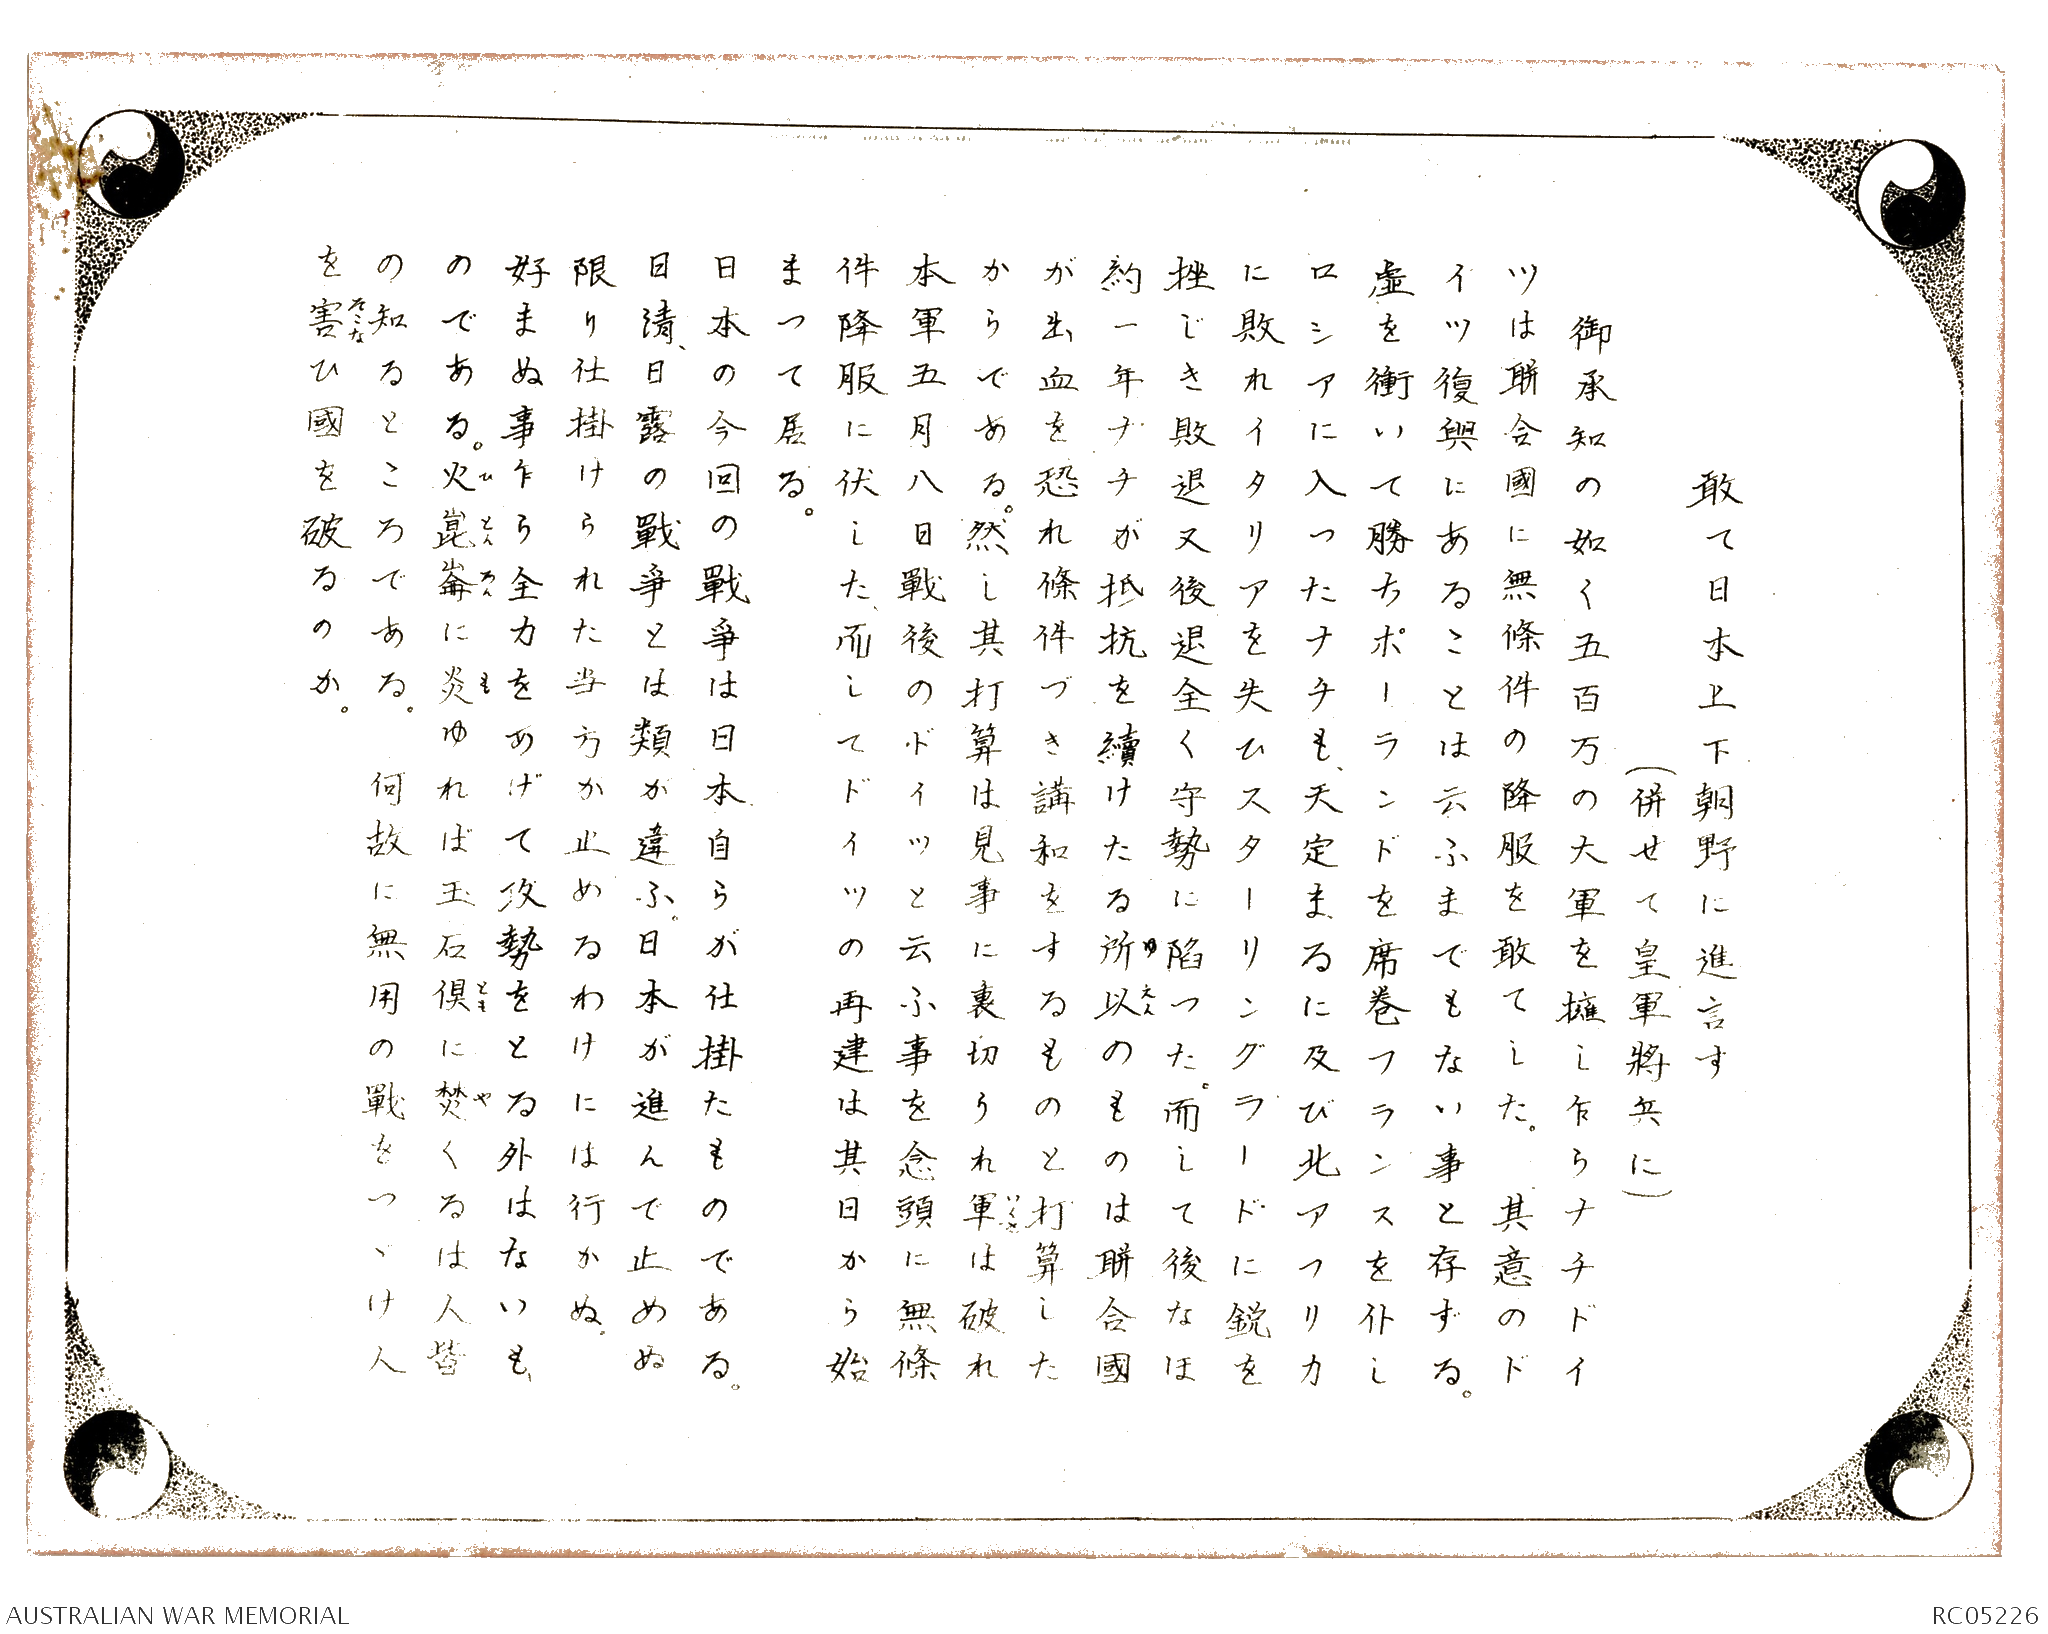 敢て日本上下朝野に進言す
(併せて皇軍將兵に)
御承知の如く五百万の大軍を擁し乍らナチドイ
ツは聯合國に無條件の降服を敢てした。其意のド
イツ復興にあることは云ふまでもない事と存ずる。
虚を衝いて勝ちポーランドを席巻フランスを仆し
ロシアに入つたナチも、天定まるに及び北アフリカ
に敗れイタリアを失ひスターリングラードに鋭を
挫じき敗退又後退全く守勢に陷つた。而して後なほ
約一年ナチが抵抗を續けたる所以のものは聯合國
が出血を恐れ條件づき講和をするものと打算した
からである。然し其打算は見事に裏切られ軍は破れ
本軍五月八日戰後のドイツと云ふ事を念頭に無條
件降服に伏した、而してドイツの再建は其日から始
まつて居る。
日本の今回の戰爭は日本自らが仕掛たものである。
日清、日露の戰爭とは類が違ふ。日本が進んで止めぬ
限り仕掛けられた当方か止めるわけには行かぬ。
好まぬ事乍ら全力をあげて攻勢をとる外はないも、
のである。火崑崙に炎ゆれば玉石倶に焚くるは人皆
の知るところである。何故に無用の戰をつゞけ人
を害ひ國を破るのか。
ゆえん
いくさ
ひ とん ろん も とも や
そこな
AUSTRALIAN WAR MEMORIAL
RC05226